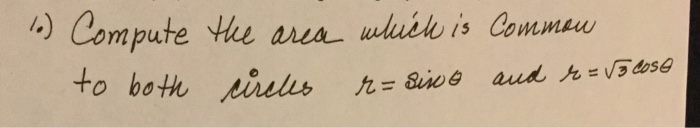 1.) Compute the area which is Common
to both circles r = sin θ and r = √3 cos θ